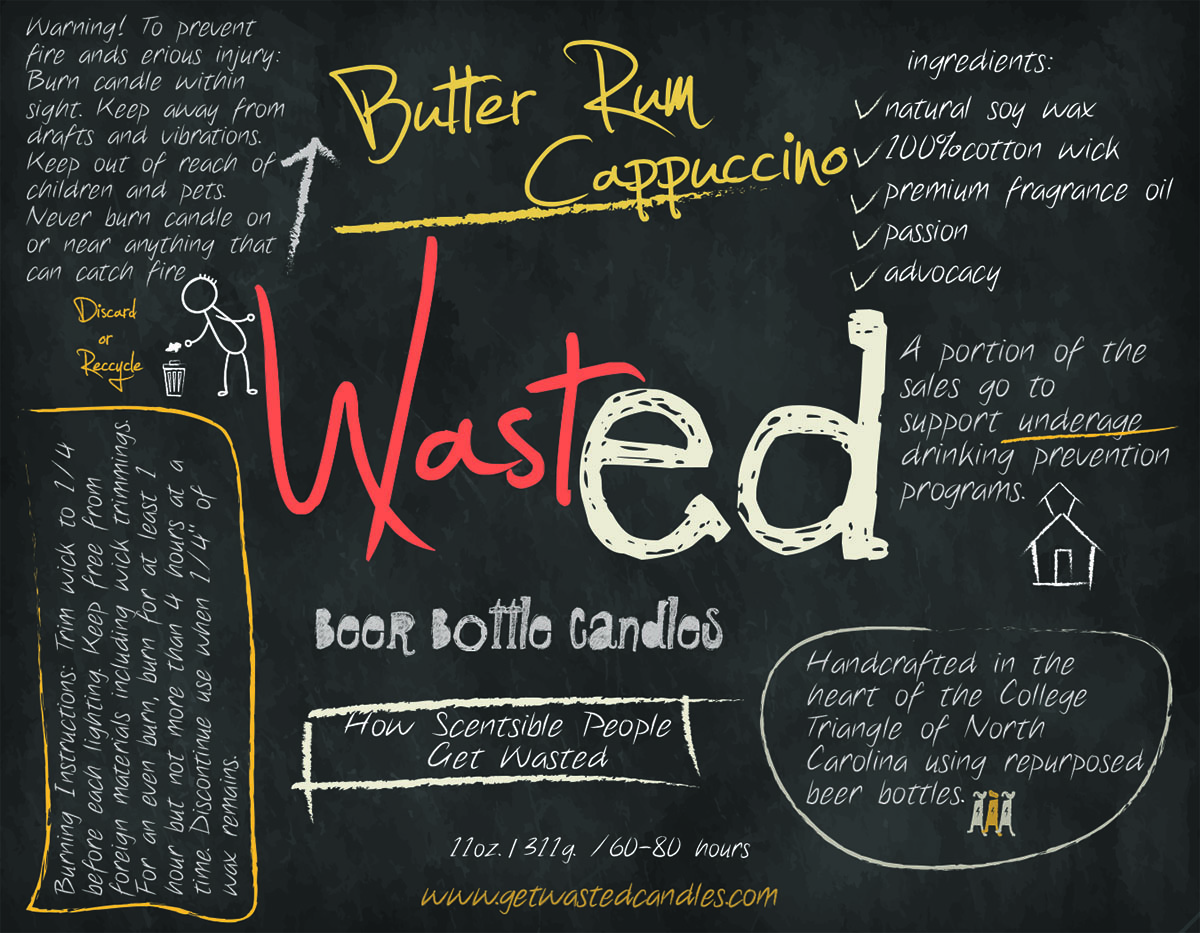 Warning! To prevent
fire ands erious injury:
Burn candle within
sight. Keep away from
drafts and vibrations.
Keep out of reach of
children and pets.
Never burn candle on
or near anything that
can catch fire
Discard
or
Reccycle
Burning Instructions: Trim wick to 1/4
before each lighting. Keep free from
foreign materials including wick trimmings.
For an even burn, burn for at least 1
hour but not more than 4 hours at a
time. Discontinue use when 1/4" of
wax remains.
Butter Rum
Cappuccino
Wasted
Beer Bottle Candles
How Scentsible People
Get Wasted
11oz. | 311g. /60-80 hours
www.getwastedcandles.com
ingredients:
natural soy wax
100%cotton wick
premium fragrance oil
passion
advocacy
A portion of the
sales go to
support underage
drinking prevention
programs.
Handcrafted in the
heart of the College
Triangle of North
Carolina using repurposed
beer bottles.